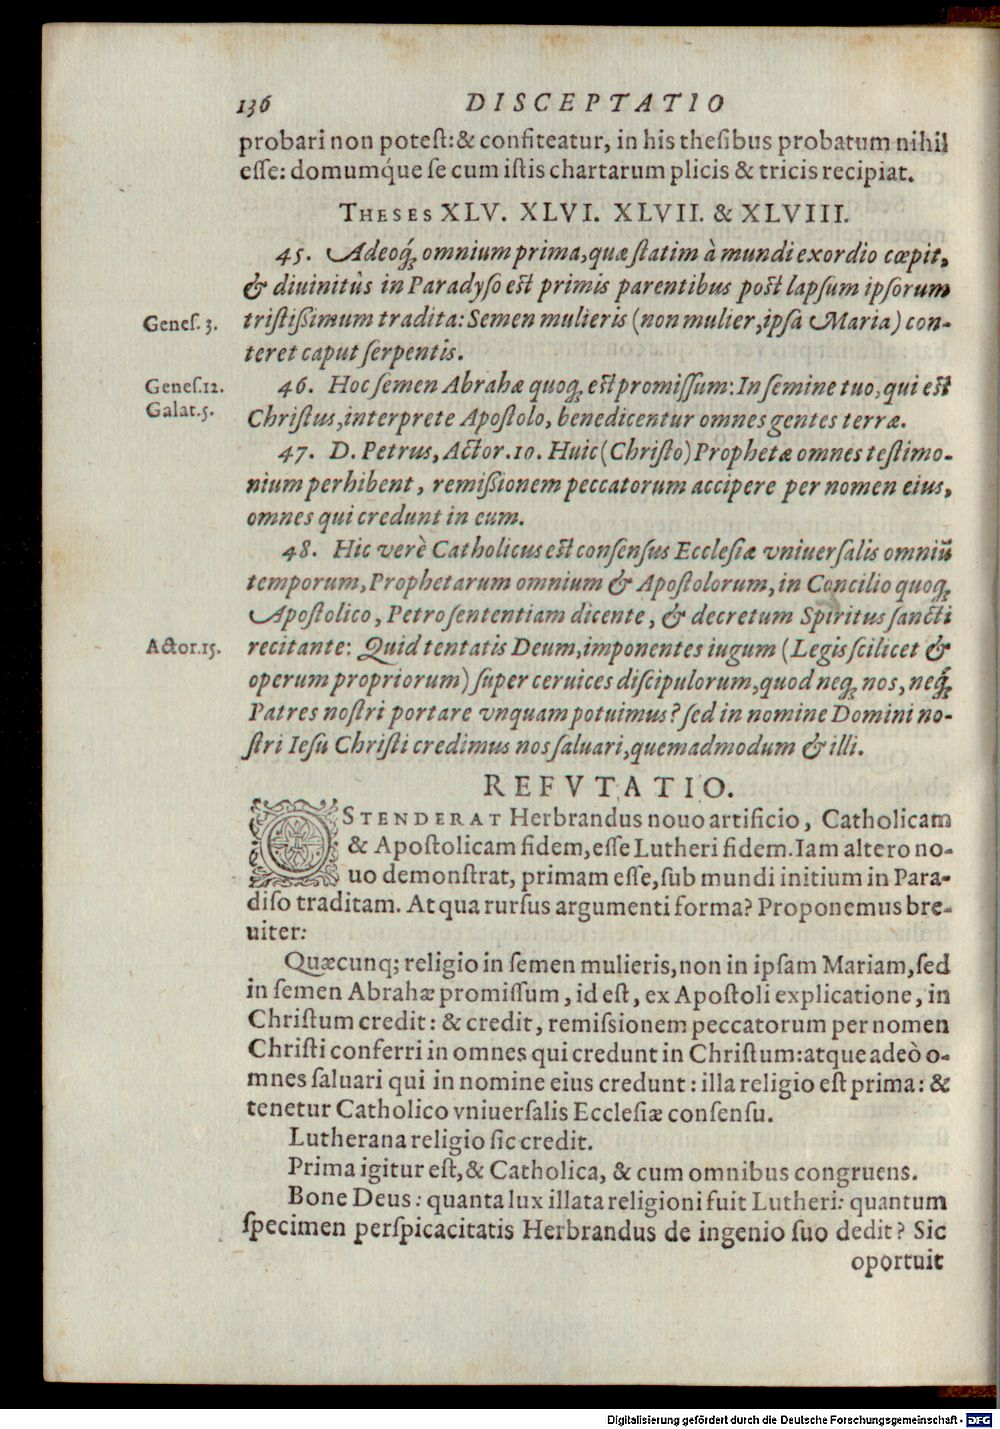 136 DISCEPTATIO
probari non potest: & confiteatur, in his thesibus probatum nihil
esse: domumq́ue se cum istis chartarum plicis & tricis recipiat.
THESES XLV. XLVI. XLVII. & XLVIII.
45. Adeoq́; omnium prima, quæ statim à mundi exordio cœpit,
& diuinitùs in Paradyso est primis parentibus post lapsum ipsorum
Genes. 3. tristißimum tradita: Semen mulieris (non mulier, ipsa Maria) con-
teret caput serpentis.
Genes. 12. 46. Hoc semen Abrahæ quoq; est promissum: In semine tuo, qui est
Galat. 5. Christus, interprete Apostolo, benedicentur omnes gentes terræ.
47. D. Petrus, Actor. 10. Huic (Christo) Prophetæ omnes testimo-
nium perhibent, remißionem peccatorum accipere per nomen eius,
omnes qui credunt in eum.
48. Hic verè Catholicus est consensus Ecclesiæ vniuersalis omniū
temporum, Prophetarum omnium & Apostolorum, in Concilio quoq;
Apostolico, Petro sententiam dicente, & decretum Spiritus sancti
Actor. 15. recitante: Quid tentatis Deum, imponentes iugum (Legis scilicet &
operum propriorum) super ceruices discipulorum, quod neq; nos, neq́;
Patres nostri portare vnquam potuimus? sed in nomine Domini no-
stri Iesu Christi credimus nos saluari, quemadmodum & illi.
REFVTATIO.
OSTENDERAT Herbrandus nouo artificio, Catholicam
& Apostolicam fidem, esse Lutheri fidem. Iam altero no-
uo demonstrat, primam esse, sub mundi initium in Para-
diso traditam. At qua rursus argumenti forma? Proponemus bre-
uiter:
Quæcunq; religio in semen mulieris, non in ipsam Mariam, sed
in semen Abrahæ promissum, id est, ex Apostoli explicatione, in
Christum credit: & credit, remissionem peccatorum per nomen
Christi conferri in omnes qui credunt in Christum: atque adeò o-
mnes saluari qui in nomine eius credunt: illa religio est prima: &
tenetur Catholico vniuersalis Ecclesiæ consensu.
Lutherana religio sic credit.
Prima igitur est, & Catholica, & cum omnibus congruens.
Bone Deus: quanta lux illata religioni fuit Lutheri: quantum
specimen perspicacitatis Herbrandus de ingenio suo dedit? Sic
oportuit
Digitalisierung gefördert durch die Deutsche Forschungsgemeinschaft - DFG